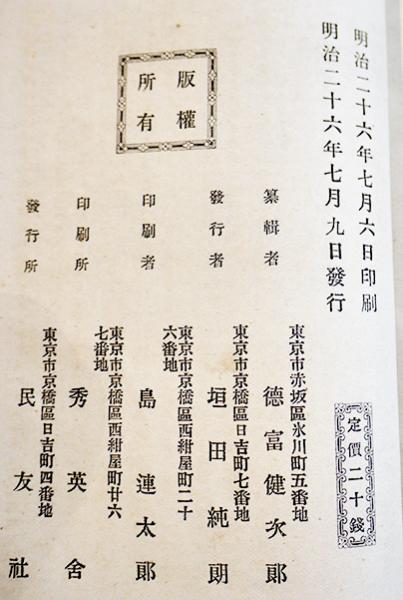 明治二十六年七月六日印刷
明治二十六年七月九日發行
定價二十錢
版權
所有
東京市赤坂區氷川町五番地
纂輯者 德富健次郎
東京市京橋區日吉町七番地
發行者 垣田純朗
東京市京橋區西紺屋町二十
六番地
印刷者 島連太郎
東京市京橋區西紺屋町廿六
七番地
印刷所 秀英舍
東京市京橋區日吉町四番地
發行所 民友社